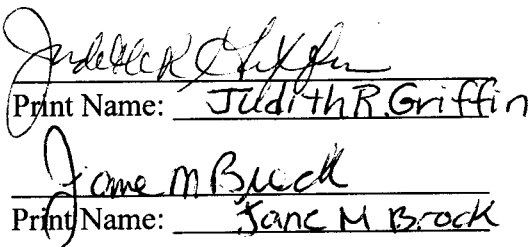 Judith R Griffin
Print Name: Judith R. Griffin
Jane M Brock
Print Name: Jane M Brock